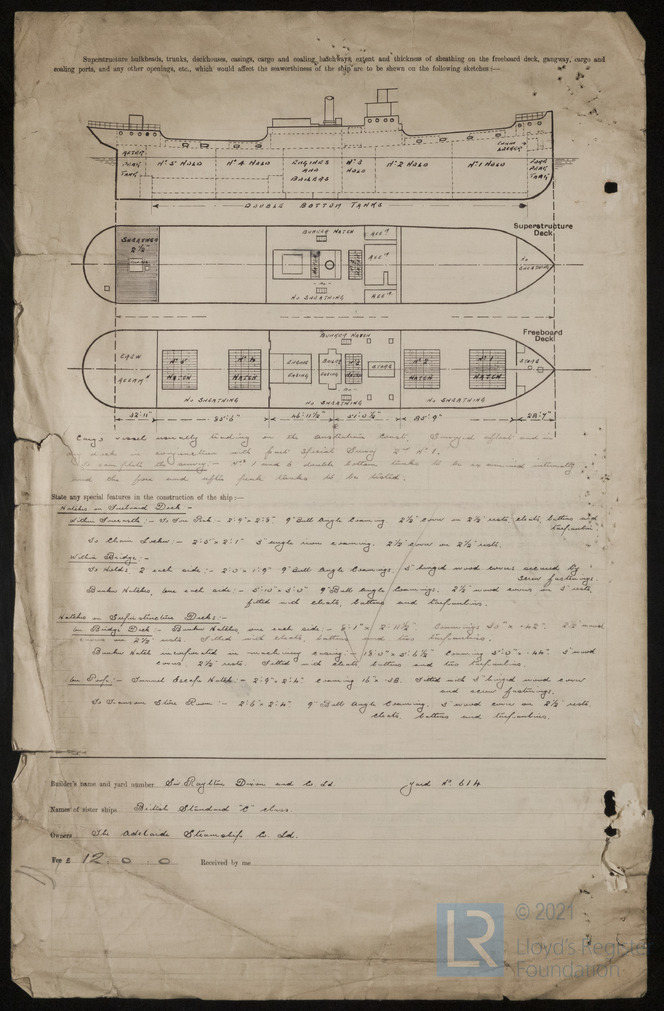 Superstructure bulkheads, trunks, deckhouses, casings, cargo and coaling hatchways, extent and thickness of sheathing on the freeboard deck, gangway, cargo and
coaling ports, and any other openings, etc., which would affect the seaworthiness of the ship are to be shown on the following sketches:—
AFTER PEAK TANK
No 5 HOLD
No 4 HOLD
ENGINES AND BOILERS
No 3 HOLD
No 2 HOLD
No 1 HOLD
CHAIN LOCKER
FORE PEAK TANK
DOUBLE BOTTOM TANKS
Superstructure Deck
SHEATHED 2½"
BUNKER HATCH
NO SHEATHING
NO SHEATHING
Freeboard Deck
CREW
BUNKER HATCH
ENGINE CASING
BOILER CASING
HATCH
HATCH
HATCH
HATCH
STORE
NO SHEATHING
NO SHEATHING
NO SHEATHING
32'11"
85'9"
28'7"
Cargo vessel usually trading on the Australian Coast. Surveyed afloat and in
dry dock in conjunction with part Special Survey 2nd No 1.
To complete the survey:- Nos 1 and 6 double bottom tanks to be examined internally
and the fore and after peak tanks to be tested.
State any special features in the construction of the ship:—
Hatches on Freeboard Deck:-
Within Forecastle:- To Fore Peak:- 2'9" x 2'3" 9" Bulb Angle Coaming. 2½" cover on 2½" rests, cleats, battens and
tarpaulin.
To Chain Locker:- 2'5" x 2'1" 3" angle iron coaming. 2½" cover on 2½" rests.
Within Bridge:-
To Holds 2 each side:- 2'0" x 1'9" 9" Bulb Angle Coamings. 3" hinged wood covers secured by
screw fastenings.
Bunker Hatches, one each side:- 5'10" x 3'0" 9" Bulb Angle Coamings. 2½" wood covers on 3" rests,
fitted with cleats, battens and tarpaulins.
Hatches on Superstructure Decks:-
On Bridge Deck:- Bunker Hatches one each side:- x 2'11½" Coamings 30" x .42". 2½" wood
covers on 2½" rests. Fitted with cleats, battens and two tarpaulins.
Bunker Hatch incorporated in machinery casing:- 18'0" x 5'6½" Coaming 3'0" x .44" 3" wood
cover, 2½" rests. Fitted with cleats battens and two tarpaulins.
On Poop:- Tunnel Escape Hatch:- 2'9" x 2'4" Coaming 16" x .38. Fitted with 3" hinged wood cover
and screw fastenings.
To Transom Store Room:- 2'6" x 2'4" 9" Bulb Angle Coaming. 3" wood cover on 2½" rests,
cleats, battens and tarpaulins.
Builder's name and yard number Sir Raylton Dixon and Co Ld Yard No 614
Names of sister ships British Standard "C" class.
Owners The Adelaide Steamship Co. Ld.
Fee £ 12 : 0 : 0 Received by me
LR
© 2021
Lloyd's Register
Foundation